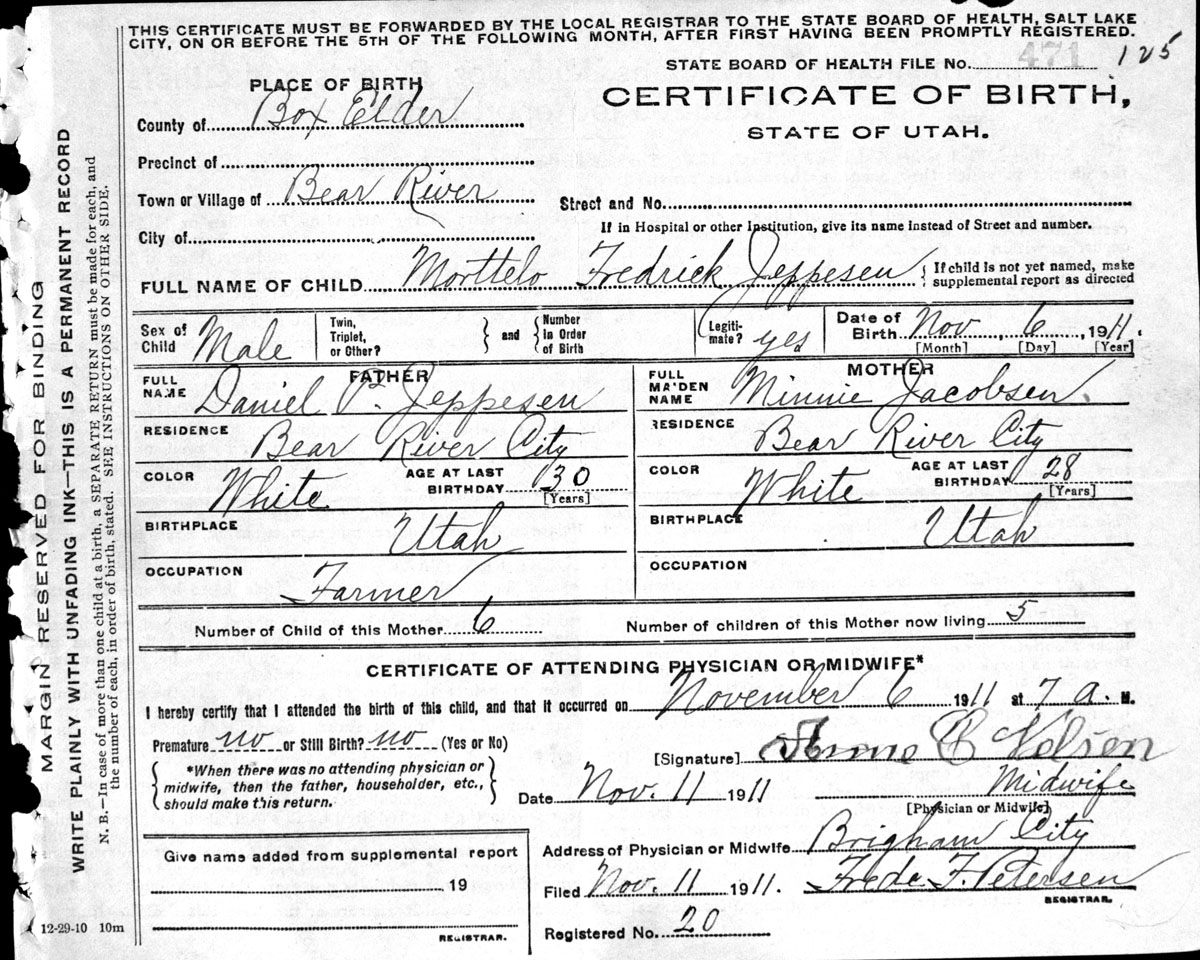 THIS CERTIFICATE MUST BE FORWARDED BY THE LOCAL REGISTRAR TO THE STATE BOARD OF HEALTH, SALT LAKE
CITY, ON OR BEFORE THE 5TH OF THE FOLLOWING MONTH, AFTER FIRST HAVING BEEN PROMPTLY REGISTERED.
STATE BOARD OF HEALTH FILE No. 471 125
PLACE OF BIRTH
CERTIFICATE OF BIRTH,
STATE OF UTAH.
County of Box Elder
Precinct of
Town or Village of Bear River
Street and No.
City of
If in Hospital or other Institution, give its name instead of Street and number.
FULL NAME OF CHILD Morttelo Fredrick Jeppesen { If child is not yet named, make
supplemental report as directed
Sex of Child Male
Twin, Triplet, or Other? } and { Number in Order of Birth
Legiti-mate? yes
Date of Birth Nov, 6, 1911.
[Month] [Day] [Year]
FATHER
FULL NAME Daniel P. Jeppesen
RESIDENCE Bear River City
COLOR White
AGE AT LAST BIRTHDAY 30
[Years]
BIRTHPLACE Utah
OCCUPATION Farmer
MOTHER
FULL MAIDEN NAME Minnie Jacobsen.
RESIDENCE Bear River City
COLOR White
AGE AT LAST BIRTHDAY 28
[Years]
BIRTHPLACE Utah
OCCUPATION
Number of Child of this Mother 6
Number of children of this Mother now living 5
CERTIFICATE OF ATTENDING PHYSICIAN OR MIDWIFE*
I hereby certify that I attended the birth of this child, and that it occurred on November 6 1911 at 7 a. M.
Premature no or Still Birth? no (Yes or No)
{ *When there was no attending physician or
midwife, then the father, householder, etc.,
should make this return. }
[Signature] C Nelsen
Date Nov. 11 1911
Midwife
[Physician or Midwife]
Address of Physician or Midwife Brigham City
Filed Nov. 11 1911. F. Petersen
REGISTRAR.
Registered No. 20
Give name added from supplemental report
19
REGISTRAR.
12-29-10 10m
MARGIN RESERVED FOR BINDING
WRITE PLAINLY WITH UNFADING INK—THIS IS A PERMANENT RECORD
N. B.—In case of more than one child at a birth, a SEPARATE RETURN must be made for each, and
the number of each, in order of birth, stated. SEE INSTRUCTIONS ON OTHER SIDE.